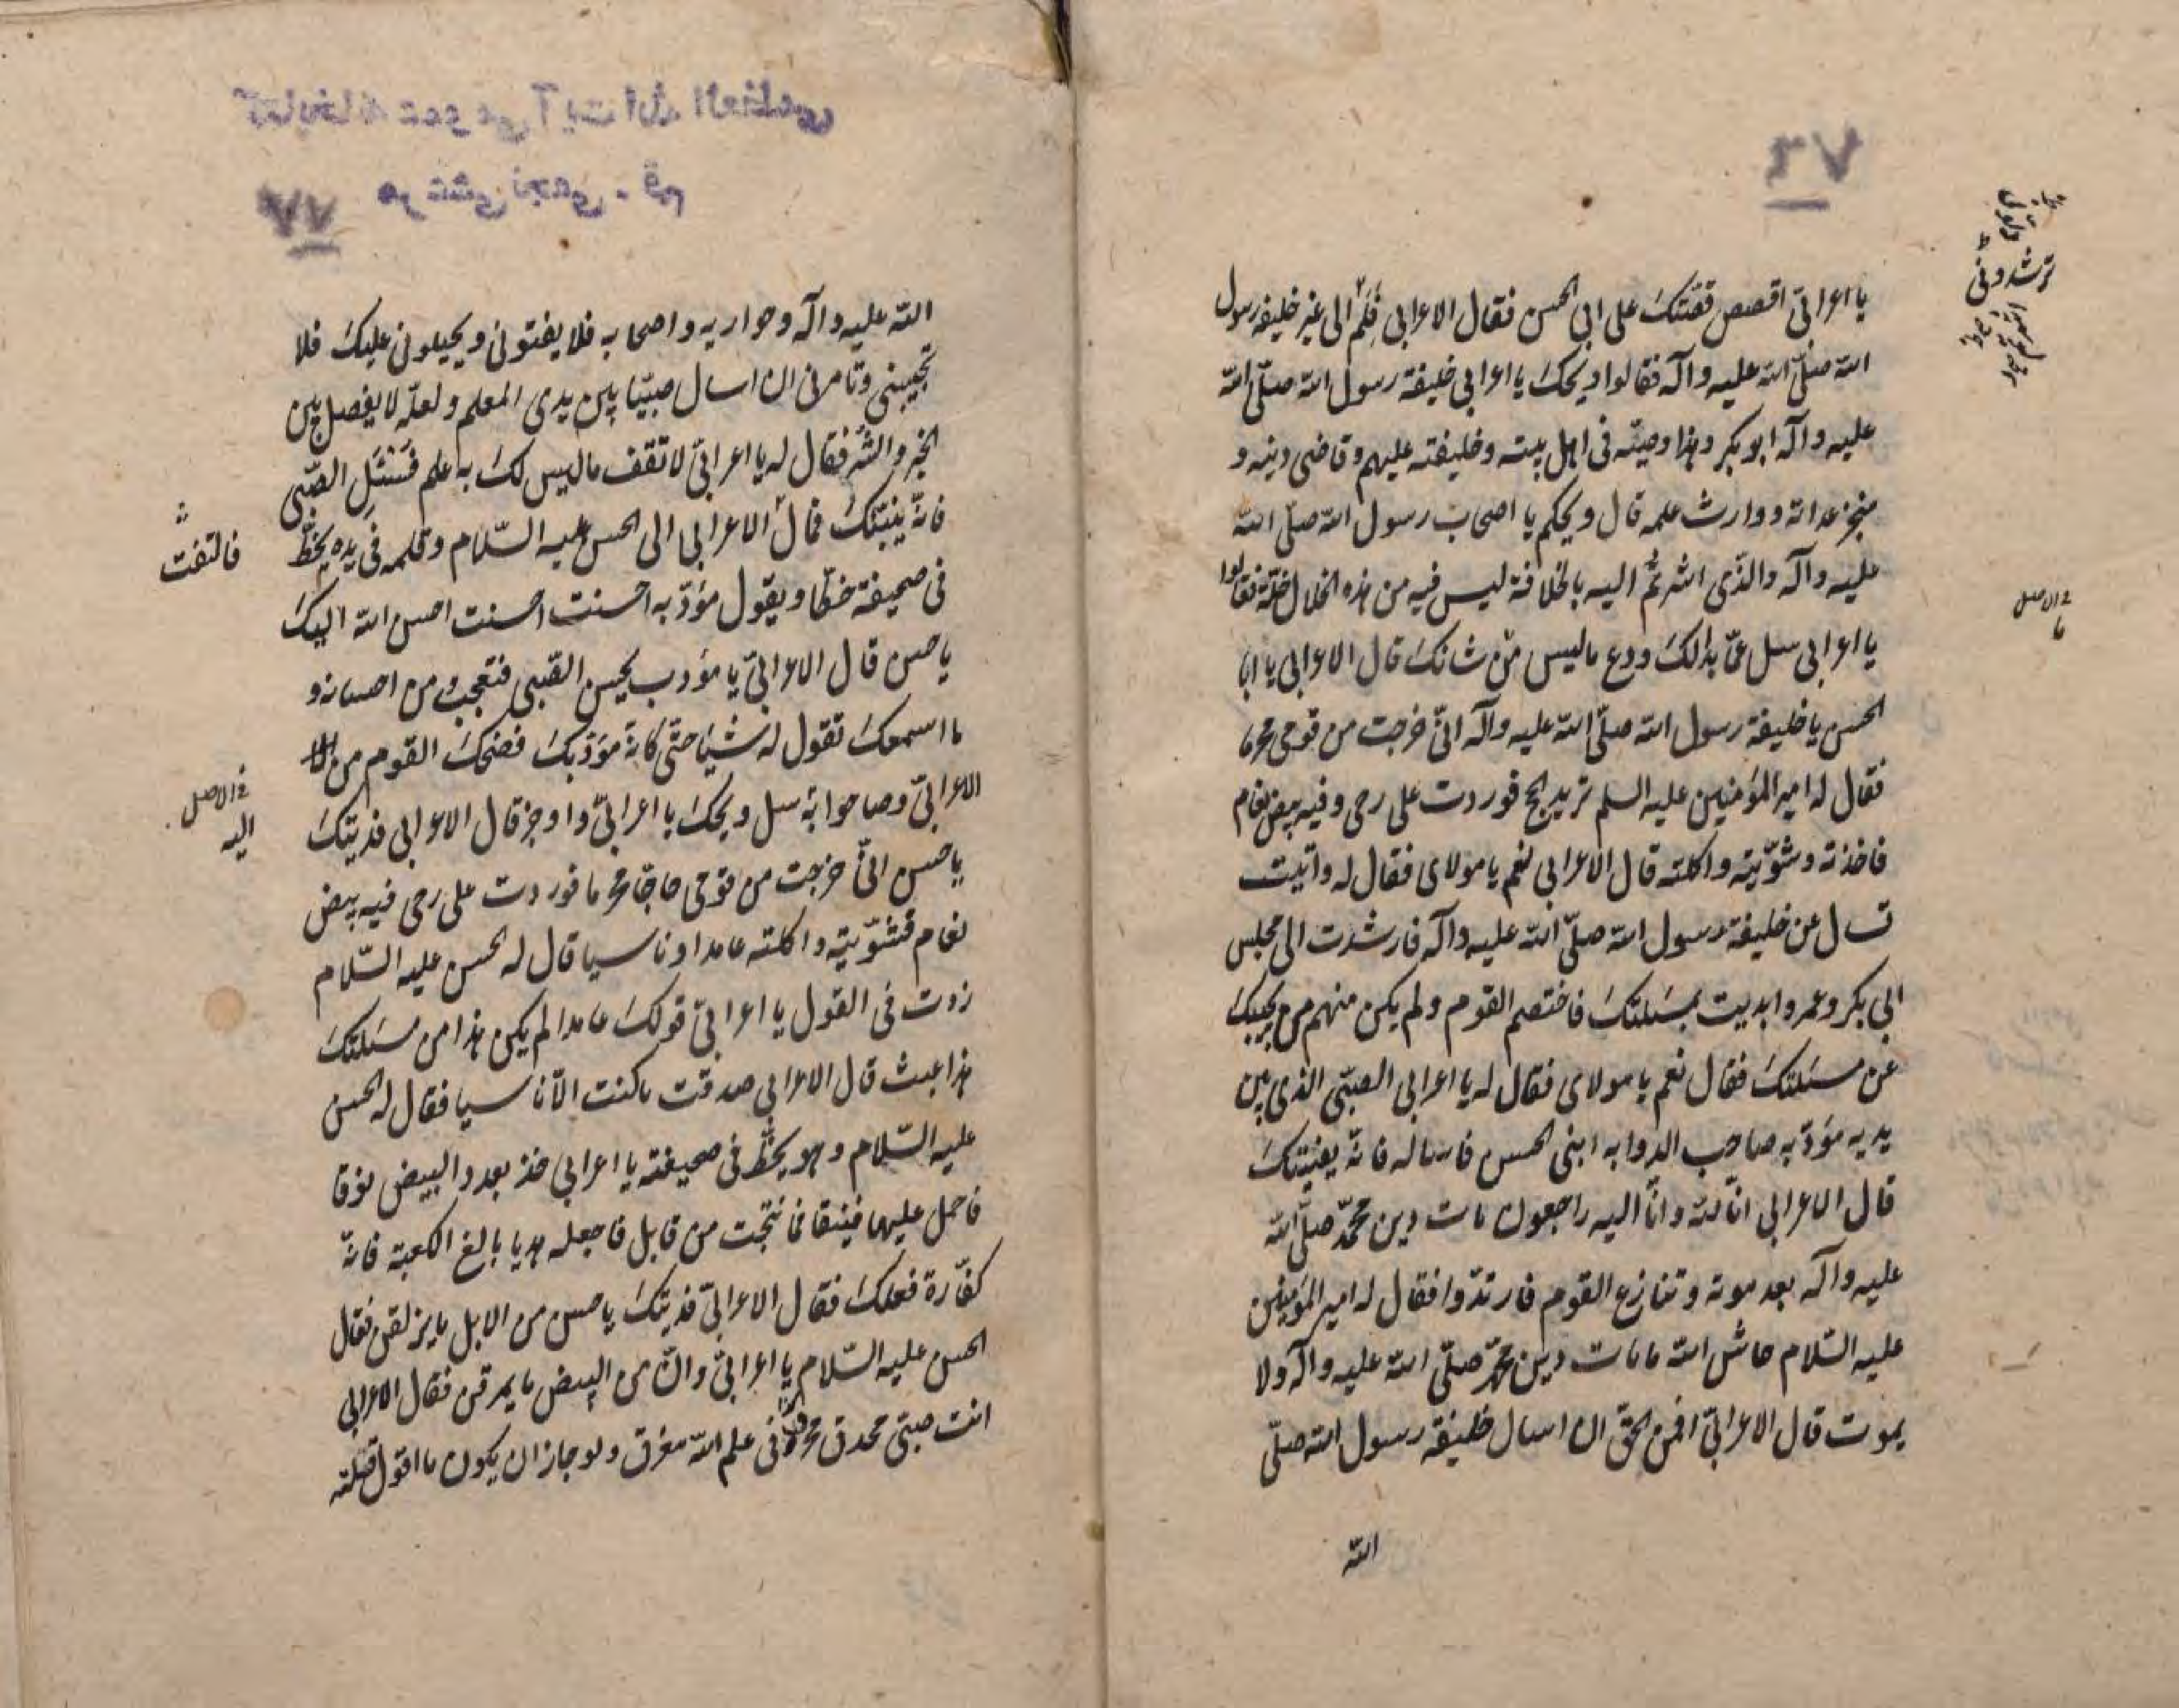 ٧٦
يا اعرابي اقصص قصتك على ابي الحسن فقال الاعرابي فلم الى غير خليفة رسول
الله صلّى الله عليه وآله فقالوا ويحك يا اعرابي خليفة رسول الله صلّى الله
عليه وآله ابو بكر وهذا وصيّه في اهل بيته وخليفته عليهم وقاضي دينه و
منجز عداته ووارث علمه قال ويحكم يا اصحاب رسول الله صلّى الله
عليه وآله والذي اشرتم اليه بالخلافة ليس فيه من هذه الخلال خلّة فقالوا
يا اعرابي سل عمّا بدالك ودع ما ليس من شانك قال الاعرابي يا ابا
الحسن يا خليفة رسول الله صلّى الله عليه وآله انّي خرجت من قومي محرما
فقال له امير المؤمنين عليه السلم تريد الحج فوردت على رحى وفيه بيض نعام
فاخذته وشوّيته واكلته قال الاعرابي نعم يا مولاى فقال له واتيت
تسال عن خليفة رسول الله صلّى الله عليه وآله فارشدت الى مجلس
ابي بكر وعمر وابديت بمسئلتك فاختصم القوم ولم يكن منهم من يجيبك
عن مسئلتك فقال نعم يا مولاى فقال له يا اعرابي الصبّي الذي بين
يديه مؤدّبه صاحب الذوابه ابني الحسن فاساله فانّه يفتيك
قال الاعرابي انّا لله وانّا اليه راجعون مات دين محمّد صلّى الله
عليه وآله بعد موته وتنازع القوم فارتدّوا فقال له امير المؤمنين
عليه السّلام حاش الله ما مات دين محمّد صلّى الله عليه وآله ولا
يموت قال الاعرابيّ افمن الحق ان اسال خليفة رسول الله صلّى
الله
ترشدوني
في الاصل
ما
كتابخانه عمومى آيت الله العظمى
مرعشى نجفى - قم
٧٧
الله عليه وآله وحواريه واصحابه فلا يفتوني ويحيلوني عليك فلا
تجيبني وتامرني ان اسال صبيّا بين يدى المعلم ولعلّه لا يفصل بين
الخير والشر فقال له يا اعرابيّ لا تقف ما ليس لك به علم فسئل الصّبي
فانّه ينبئك فمال الاعرابي الى الحسن عليه السّلام وقلمه في يده يخطّ
في صحيفة خطّا ويقول مؤدّبه احسنت احسنت احسن الله اليك
يا حسن قال الاعرابيّ يا مؤدب يحسن الصّبي فتعجب من احسانه و
ما اسمعك تقول له شيئا حتّى كانّه مؤدّبك فضحك القوم من
الاعرابيّ وصاحوا به سل ويحك يا اعرابيّ واوجز قال الاعرابي فديتك
يا حسن انّي خرجت من قومي حاجّا محرما فوردت على رحى فيه بيض
نعام فشوّيته واكلته عامدا وناسيا قال له الحسن عليه السّلام
زدت في القول يا اعرابيّ قولك عامدا لم يكن هذا من مسئلتك
هذا عبث قال الاعرابي صدقت ما كنت الّا ناسيا فقال له الحسن
عليه السّلام وهو يخطّ في صحيفته يا اعرابي خذ بعدد البيض نوقا
فاحمل عليها فنيقا فما نتجت من قابل فاجعله هديا بالغ الكعبة فانّه
كفّارة فعلك فقال الاعرابيّ فديتك يا حسن من الابل ما يزلقن فقال
الحسن عليه السّلام يا اعرابيّ وانّ من البيض ما يمرقن فقال الاعرابي
انت صبيّ محدق في علم الله مغرق ولو جاز ان يكون ما اقول قلته
فالتفت
في الاصل
اليه